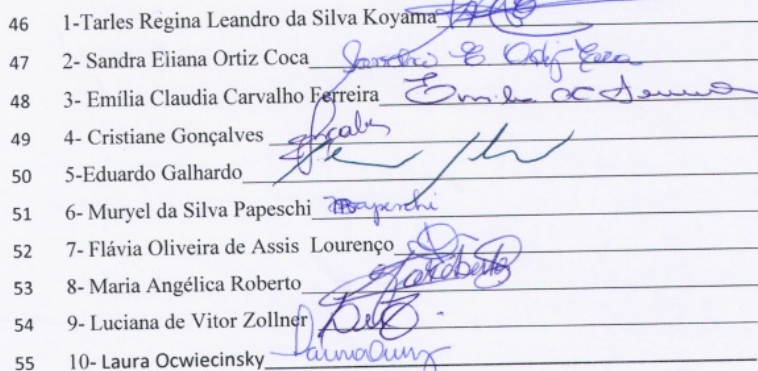 46 1-Tarles Regina Leandro da Silva Koyama
47 2- Sandra Eliana Ortiz Coca Sandra E Ortiz Coca
48 3- Emília Claudia Carvalho Ferreira
49 4- Cristiane Gonçalves
50 5-Eduardo Galhardo
51 6- Muryel da Silva Papeschi mspapeschi
52 7- Flávia Oliveira de Assis Lourenço
53 8- Maria Angélica Roberto
54 9- Luciana de Vitor Zollner
55 10- Laura Ocwiecinsky